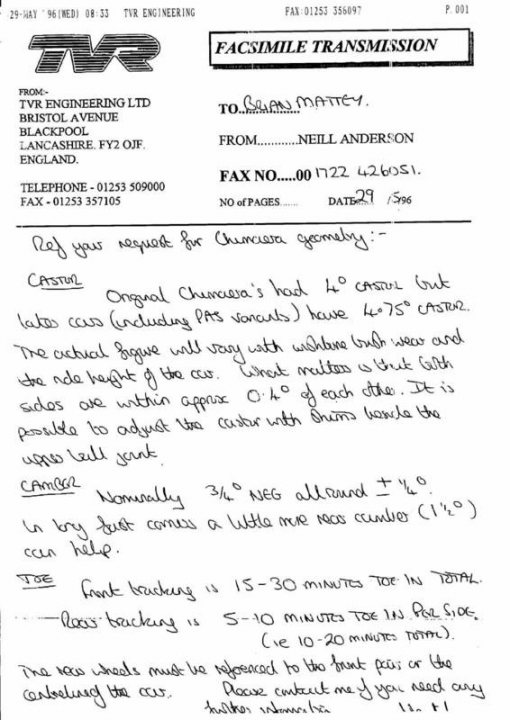 29-MAY '96(WED) 08:33 TVR ENGINEERING FAX:01253 356097 P. 001
TVR
FACSIMILE TRANSMISSION
FROM:-
TVR ENGINEERING LTD
BRISTOL AVENUE
BLACKPOOL
LANCASHIRE. FY2 OJF.
ENGLAND.
TELEPHONE - 01253 509000
FAX - 01253 357105
TO..BRIAN MATTEY.
FROM............NEILL ANDERSON
FAX NO.....00 1722 426051.
NO of PAGES....... DATE 29 /5/96
Ref your request for Chimaera geometry:-
CASTOR
Original Chimaera's had 4° CASTOR but
later cars (including PAS variants) have 4.75° CASTOR.
The actual figure will vary with wishbone bush wear and
the ride height of the car. What matters is that both
sides are within approx 0.4° of each other. It is
possible to adjust the castor with shims beside the
upper ball joint.
CAMBER
Nominally 3/4° NEG allround ± 1/4°.
In very fast corners a little more rear camber (1 1/2°)
can help.
TOE
Front tracking is 15-30 MINUTES TOE IN TOTAL.
Rear tracking is 5-10 MINUTES TOE IN PER SIDE.
(ie 10-20 MINUTES TOTAL).
The rear wheels must be referenced to the front pair or the
centreline of the car. Please contact me if you need any
further information